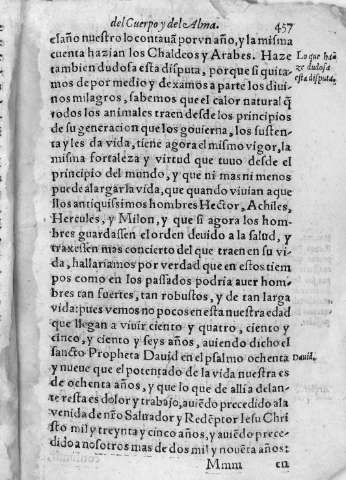 del Cuerpo y del Alma. 457
el año nuestro lo contauã por vn año, y la misma
cuenta hazian los Chaldeos y Arabes. Haze
tambien dudosa esta disputa, porque si quita-
mos de por medio y dexamos a parte los diui-
nos milagros, sabemos que el calor natural q̃
todos los animales traen desde los principios
de su generacion que los gouierna, los susten-
ta y les da vida, tiene agora el mismo vigor, la
misma fortaleza y virtud que tuuo desde el
principio del mundo, y que ni mas ni menos
puede alargar la vida, que quando viuian aque
llos antiquissimos hombres Hector, Achiles,
Hercules, y Milon, y que si agora los hom-
bres guardassen el orden deuido a la salud, y
traxessen mas concierto del que traen en su vi-
da, hallariamos por verdad que en estos tiem
pos como en los passados podria auer hom-
bres tan fuertes, tan robustos, y de tan larga
vida: pues vemos no pocos en esta nuestra edad
que llegan a viuir ciento y quatro, ciento y
cinco, y ciento y seys años, auiendo dicho el
sancto Propheta Dauid en el psalmo ochenta
y nueue que el potentado de la vida nuestra es
de ochenta años, y que lo que de alli a delan-
te resta es dolor y trabajo, auiẽdo precedido a la
venida de nr̃o Saluador y Redẽptor Iesu Chri
sto mil y treynta y cinco años, y auiẽdo prece-
dido a nosotros mas de dos mil y nouẽta años:
Mmm en
Lo que ha-
ze dudosa
esta disputa.
Dauid.